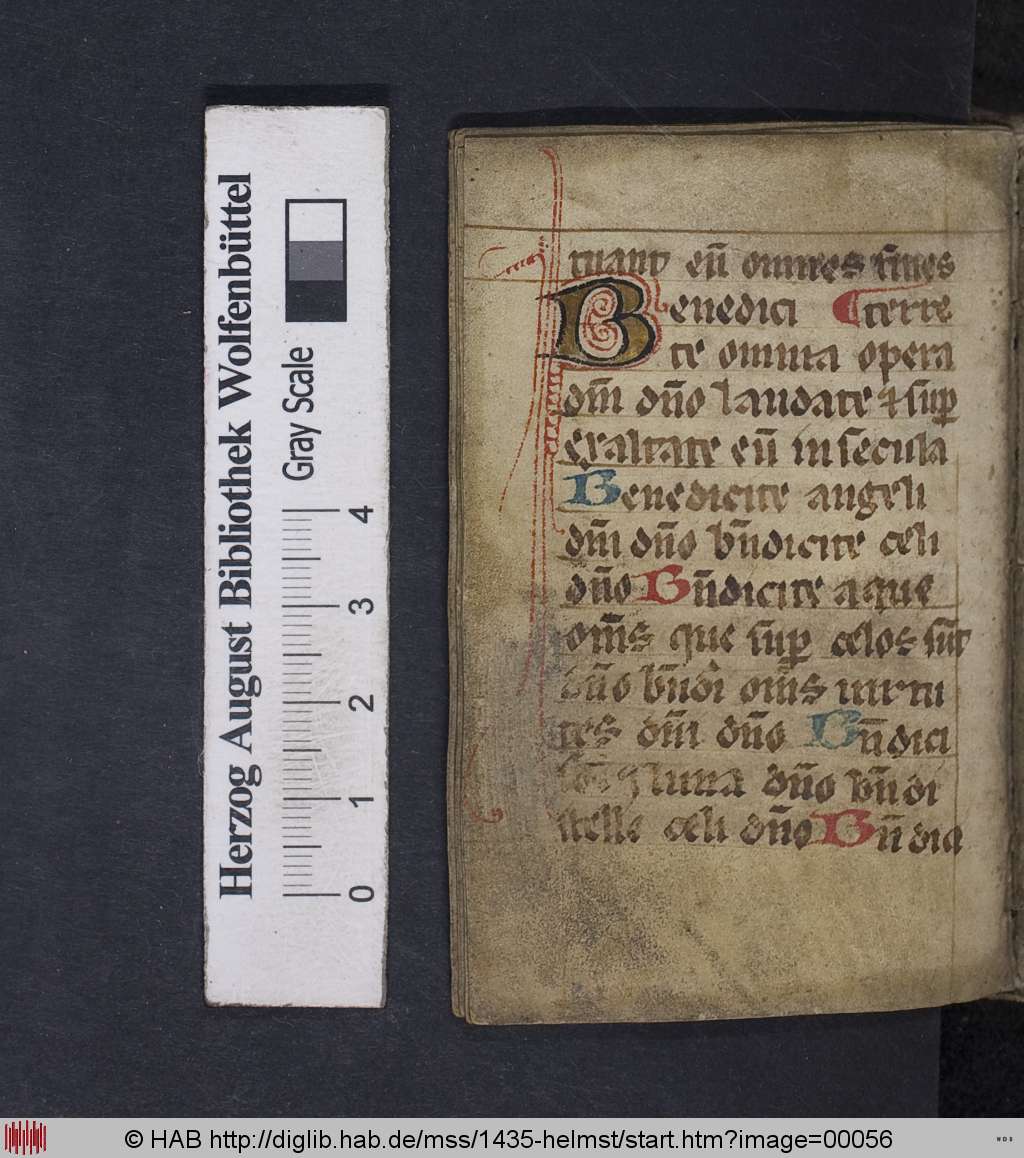 Herzog August Bibliothek Wolfenbüttel
Gray Scale
4
3
2
1
0
tuant eū omnes fines
Benedici ¶ terre
te omnia opera
dn̄i dn̄o laudate ⁊ suꝑ
exaltate eū in secula
Benedicite angeli
dn̄i dn̄o bn̄dicite celi
dn̄o Bn̄dicite aque
om̄s que suꝑ celos sūt
dn̄o bn̄di om̄s uirtu
tes dn̄i dn̄o Bn̄dici
luna dn̄o bn̄di
stelle celi dn̄o Bn̄dici
© HAB http://diglib.hab.de/mss/1435-helmst/start.htm?image=00056